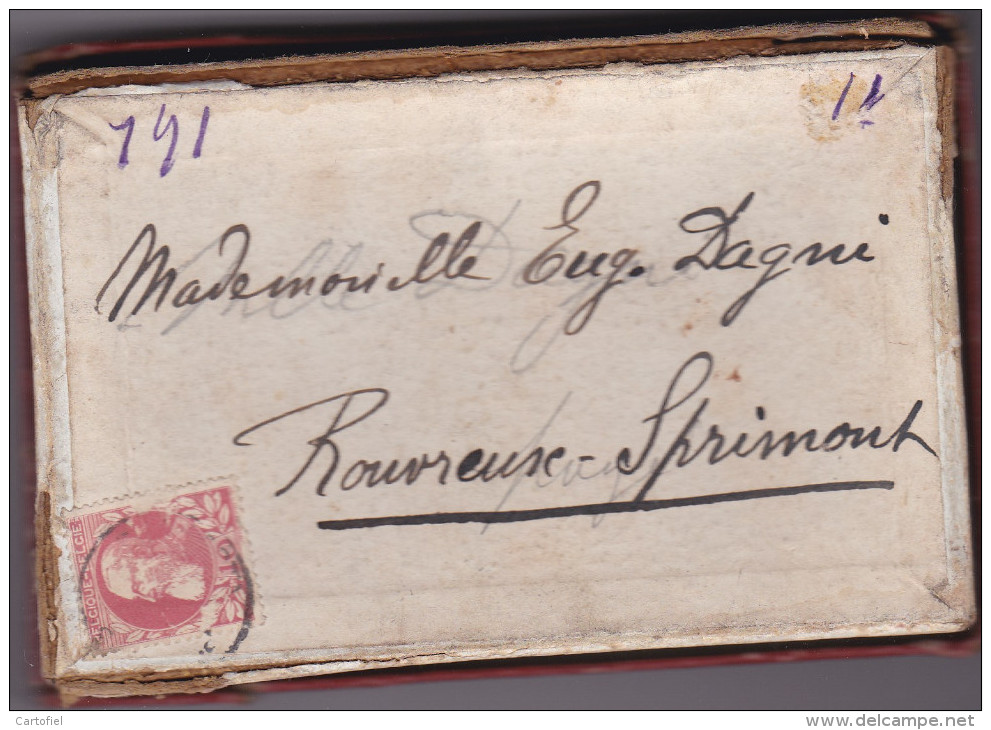 191
11
Mademoiselle Eug. Dagni
Rouvreux-Sprimont
BELGIQUE-BELGIË
Cartofiel
www.delcampe.net